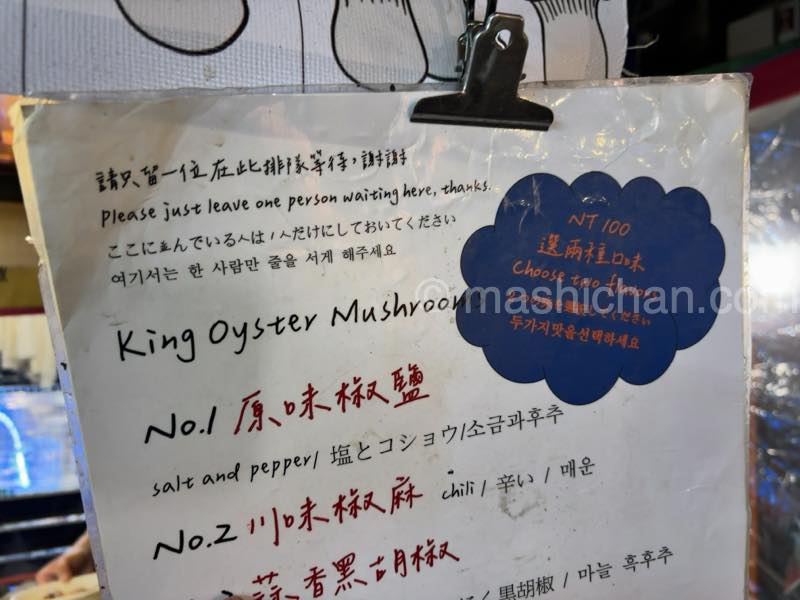 請只留一位在此排隊等待，謝謝
please just leave one person waiting here, thanks.
ここに並んでいる人は1人だけにしておいてください
여기서는 한 사람만 줄을 서게 해주세요
King Oyster Mushroom
NT 100
選兩種口味
Choose two flavors
ください
두가지맛을선택하세요
No.1 原味椒鹽
salt and pepper/ 塩とコショウ/소금과후추
No.2 川味椒麻 chili / 辛い / 매운
蒜香黑胡椒
黒胡椒 / 마늘 흑후추
© mashichan.com